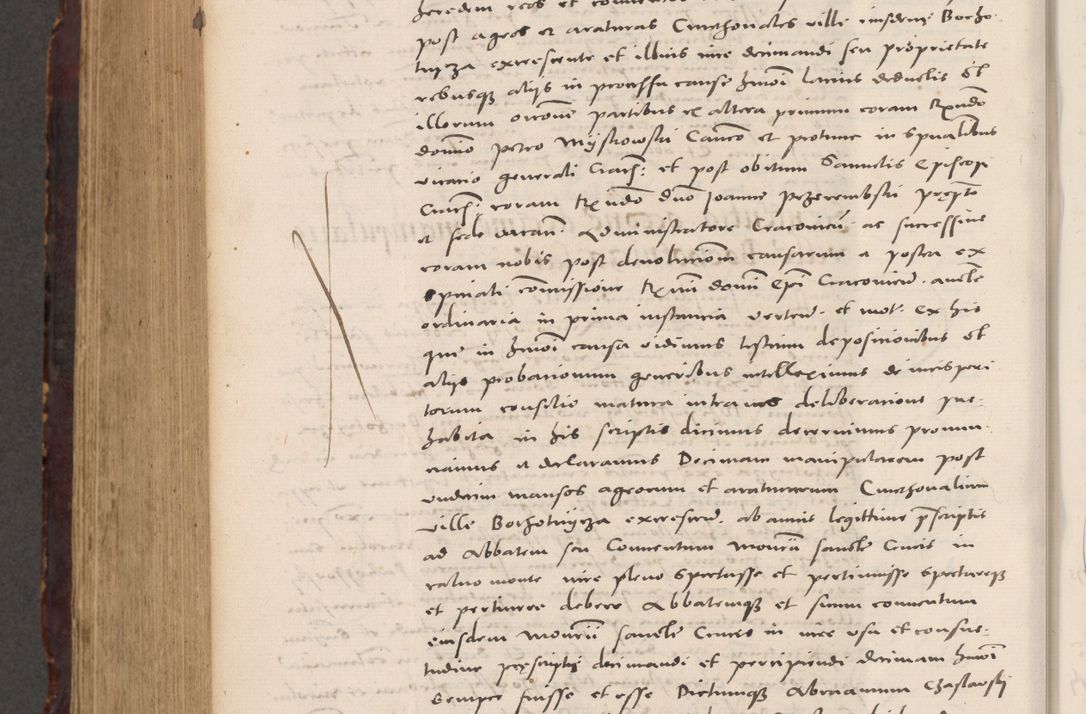 post agros et araturas Cmethonales ville ibidem Borzo
tuyza excrescente et illius iure decimandi seu proprietate
rebusque alijs in processu cause hmoi latius deductis Et
illorum partibus ex altera primum coram Rndo
domino Petro Myskowski Canco et protunc in spualibus
vicario generali Craci: et post obitum Samuelis Episcopi
Craci: coram Rndo dno Joanne Przerembski prepto
et sede vacan administratore Cracovien: ac successiue
coram nobis post deuolucionem causarum a postea ex
speciali comissione Rmi domini Epi Cracovien. auctte
ordinaria in prima instancia verten. et mot. Ex his
que in hmoi causa vidimus testium deposicionibus Et
alijs probacionum generibus intelleximus de iurisperi
torum consilio matura intra nos deliberacione pre-
habita in his scriptis dicimus decernimus pronun
ciamus et declaramus Decimam manipularem post
vndecim mansos agrorum et araturarum Cmethonalium
ville Borzotuyza excrescen. ab annis legittime prescriptis
ad Abbatem seu Conuentum Monrii sancte Crucis in
caluo monte iure pleno spectasse et pertinuisse spectareque
et pertinere debere Abbatemque et suum conuentum
eiusdem Monrii sancte Crucis in iure vsu et consue-
tudine prescriptis decimandi et percipiendi decimam hmoi
Semper fuisse et esse Dictumque Abraamum Chaslawsky